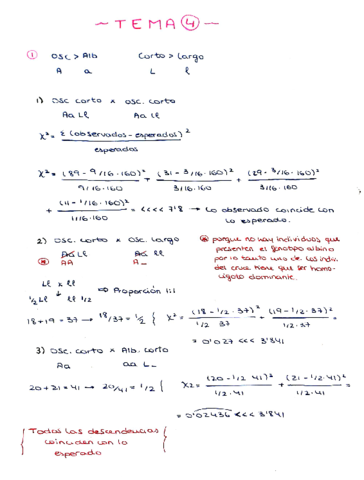 - TEMA 4 -
① Osc > Alb Corto > Largo
A a L l
1) Osc corto x osc. corto
Aa Ll Aa Ll
χ² = Σ (observados - esperados)²
esperados
χ² = (89 - 9/16 · 160)² + (31 - 3/16 · 160)² + (29 - 3/16 · 160)²
9/16 · 160 3/16 · 160 3/16 · 160
+ (11 - 1/16 · 160)² = <<<< 7'8 → Lo observado coincide con
1/16 · 160 lo esperado.
2) Osc. corto x Osc. largo
Aa Ll Aa ll
AA A_
porque no hay individuos que
presenten el fenotipo albino
por lo tanto uno de los indiv.
del cruce tiene que ser homo-
cigoto dominante.
Ll x ll
1/2 Ll ll 1/2 ⇒ Proporción 1:1
18+19 = 37 → 18/37 = 1/2 { χ² = (18 - 1/2 · 37)² + (19 - 1/2 · 37)² =
1/2 · 37 1/2 · 37
= 0'027 <<< 3'841
3) Osc. corto x Alb. corto
Aa aa L_
20 + 21 = 41 → 20/41 = 1/2 { χ2 = (20 - 1/2 · 41)² + (21 - 1/2 · 41)² =
1/2 · 41 1/2 · 41
= 0'02436 <<< 3'841
Todas las descendencias
coinciden con lo
esperado